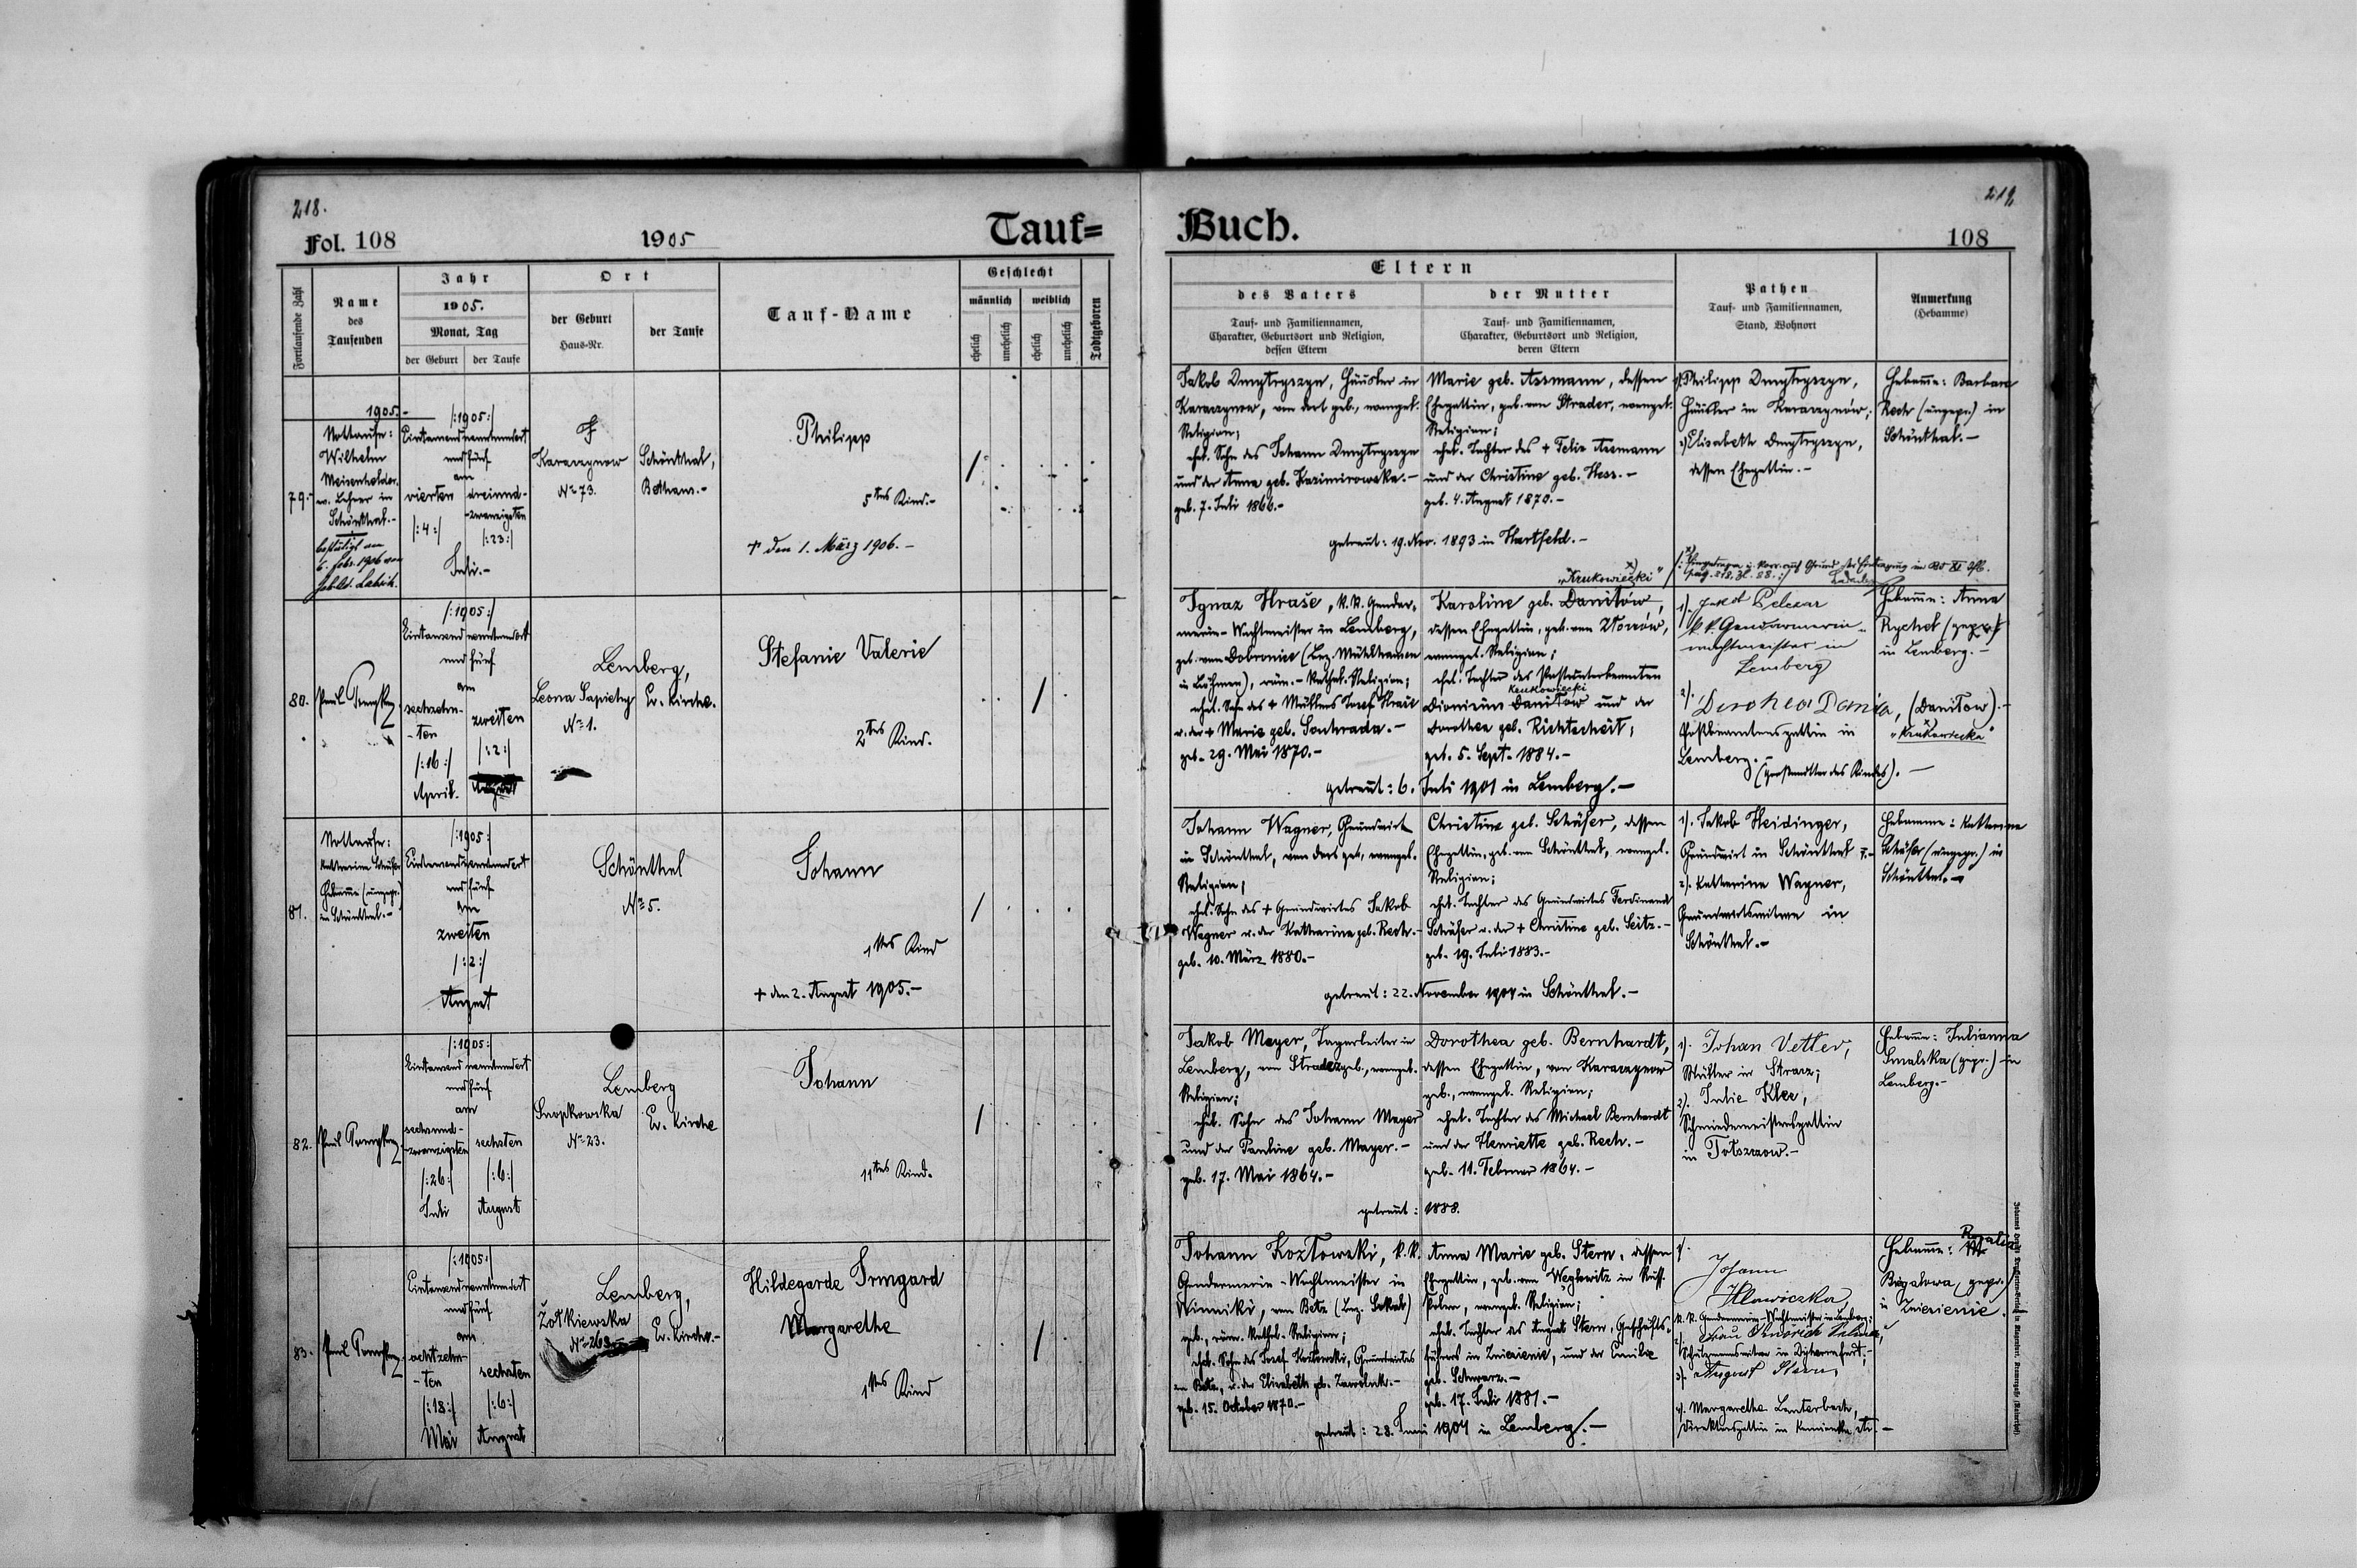 218.
Fol. 108
1905
Tauf=
Fortlaufende Zahl
Name
des
Taufenden
Jahr
1905.
Monat, Tag
der Geburt
der Taufe
Ort
der Geburt
Haus-Nr.
der Taufe
Tauf-Name
Geschlecht
männlich
weiblich
ehelich
unehelich
ehelich
unehelich
Todtgeboren
1905.-
79.
Nottaufe:
Wilhelm
Meisenhelder
ev. Lehrer in
Schönthal.-
bestätigt am
6. Febr. 1906 von
/:1905:/
Eintausendneunhundert
und fünf
am
vierten
/:4:/
dreiund-
-zwanzigsten
/:23:/
Juli.-
Karaczynow
No 73.
Schönthal,
Bethaus.-
Philipp
5tes Kind.-
† den 1. März 1906.-
80.
/:1905:/
Eintausend neunhundert
und fünf
am
sechzehn-
-ten
/:16:/
April.
zweiten
/:2:/
August
Lemberg,
Leona Sapiehy
No 1.
Ev. Kirche.
Stefanie Valerie
2tes Kind.
81.
Nottaufe:
Katharina Schäfer
Hebamme (ungepr.)
in Schönthal.-
/:1905:/
Eintausendneunhundert
und fünf
am
zweiten
/:2:/
August
Schönthal
No 5.
Johann
1tes Kind
+ den 2. August 1905.-
82.
/:1905:/
Eintausend neunhundert
und fünf
am
sechsund-
-zwanzigsten
/:26:/
Juli
sechsten
/:6:/
August
Lemberg
Snopkowska
No 23.
Ev. Kirche
Johann
11tes Kind.
83.
/:1905:/
Eintausendneunhundert
und fünf
am
achtzehn-
-ten
/:18:/
Mai
sechsten
/:6:/
August
Lemberg,
Żółkiewska
No 263
Ev. Kirche.-
Hildegarde Irmgard
Margarethe
1tes Kind
Buch.
219
108
Eltern
des Vaters
Tauf- und Familiennamen,
Charakter, Geburtsort und Religion,
dessen Eltern
der Mutter
Tauf- und Familiennamen,
Charakter, Geburtsort und Religion,
deren Eltern
Pathen
Tauf- und Familiennamen,
Stand, Wohnort
Anmerkung
(Hebamme)
Jakob Dmytryszyn, Häusler in
Karaczynow, von dort geb., evangel.
Religion;
ehel. Sohn des Johann Dmytryszyn
und der Anna geb. Kazimirowska.-
geb. 7. Juli 1866.-
Marie geb. Assmann, dessen
Ehegattin, geb. von Stradez, evangel.
Religion;
ehel. Tochter des + Felix Assmann
und der Christine geb. Hess.-
geb. 4. August 1870.-
getraut: 19. Nov. 1893 in Hartfeld.-
1). Philipp Dmytryszyn,
Häusler in Karaczynów;
2) Elisabeth Dmytryszyn,
dessen Ehegattin.-
Hebamme: Barbara
Rech (ungepr.) in
Schönthal.-
x)
"Krukowiecki"
Ignaz Hraše, k.k. Gendar-
merie-Wachtmeister in Lemberg,
geb. von Dobronice (Bez. Mühlhausen
in Böhmen), röm.-kathol. Religion;
ehel. Sohn des + Müllers Josef Hraše
u. der + Marie geb. Sonhrada.-
geb. 29. Mai 1870.-
Karoline geb. Danitów,
dessen Ehegattin, geb. von
evangel. Religion;
ehel. Tochter des Postunterbeamten
Krukowiecki
Dionisius Danitow und der
Dorothea geb. Richtscheit;
geb. 5. Sept. 1884.-
getraut: 6. Juli 1901 in Lemberg.-
1). Pelczar
k.k. Gendarmerie-
wachtmeister in
Lemberg
2). Dorothea Dani, (Danitow).-
x)
"Krukowiecka"
Postbeamtensgattin in
Lemberg.-
(Großmutter des Kindes).-
Hebamme: Anna
Rychet (gepr.)
in Lemberg.-
Johann Wagner, Grundwirt
in Schönthal, von dort geb., evangel.
Religion;
ehel. Sohn des + Grundwirtes Jakob
Wagner u. der Katharina geb. Rech.-
geb. 10. März 1880.-
Christine geb. Schäfer, dessen
Ehegattin, geb. von Schönthal, evangel.
Religion;
ehel. Tochter des Grundwirtes Ferdinand
Schäfer u. der + Christine geb. Seitz.-
geb. 19. Juli 1883.-
getraut: 22. November 1904 in Schönthal.-
1). Jakob Heidinger,
Grundwirt in Schönthal
2). Katharina Wagner,
Grundwirtswitwe in
Schönthal.-
Hebamme: Katharina
Schäfer (ungepr.) in
Schönthal.-
Jakob Mayer, Tagarbeiter in
Lemberg, von Stradez geb., evangel.
Religion;
ehel. Sohn des Johann Mayer
und der Pauline geb. Mayer.-
geb. 17. Mai 1864.-
Dorothea geb. Bernhardt,
dessen Ehegattin, von Karaczynow
geb., evangel. Religion;
ehel. Tochter des Michael Bernhardt
und der Henriette geb. Rech.-
geb. 11. Februar 1864.-
getraut: 1888.
1). Johan Vetter,
Müller in
2). Julie Klee,
Schmiedemeistersgattin
in Tołszczow.-
Hebamme: Julianna
Smalska (gepr.) in
Lemberg.-
Johann Kozłowski, k.k.
Gendarmerie-Wachtmeister in
Winniki, von Betz (Bez. Sokal)
geb., röm. kathol. Religion;
ehel. Sohn des Josef Kozlowski, Grundwirtes
in Betz, u. der Elisabeth geb.
geb. 15. October 1870.-
Anna Marie geb. Stern, dessen
Ehegattin, geb. von Weglowitz in Russ.
Polen, evangel. Religion;
ehel. Tochter des August Stern, Geschäfts-
führers in Zniesienie, und der Emilie
geb. Schwarz.-
geb. 17. Juli 1881.-
getraut: 28. Juni 1904 in Lemberg.-
1). Johann
Hlawiczka
k.k. Gendarmerie-Wachtmeister in Lemberg;
2). Frau
3). August Stern,
4). Margarethe Lauterbach,
Direktorsgattin in
Hebamme: Rozalia
(gepr.)
in Zniesienie.